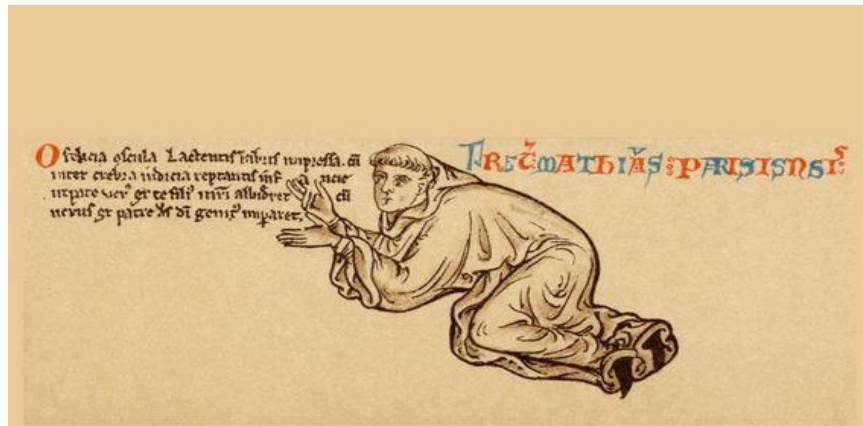 O felicia oscula Lactentis labris impressa. cū
inter crebra indicia reptantis inf ancie
utpote verꝰ ex te filiꝰ cū
verus ex patre dī genitꝰ imparet.
MATHIAS PARISIENSIS